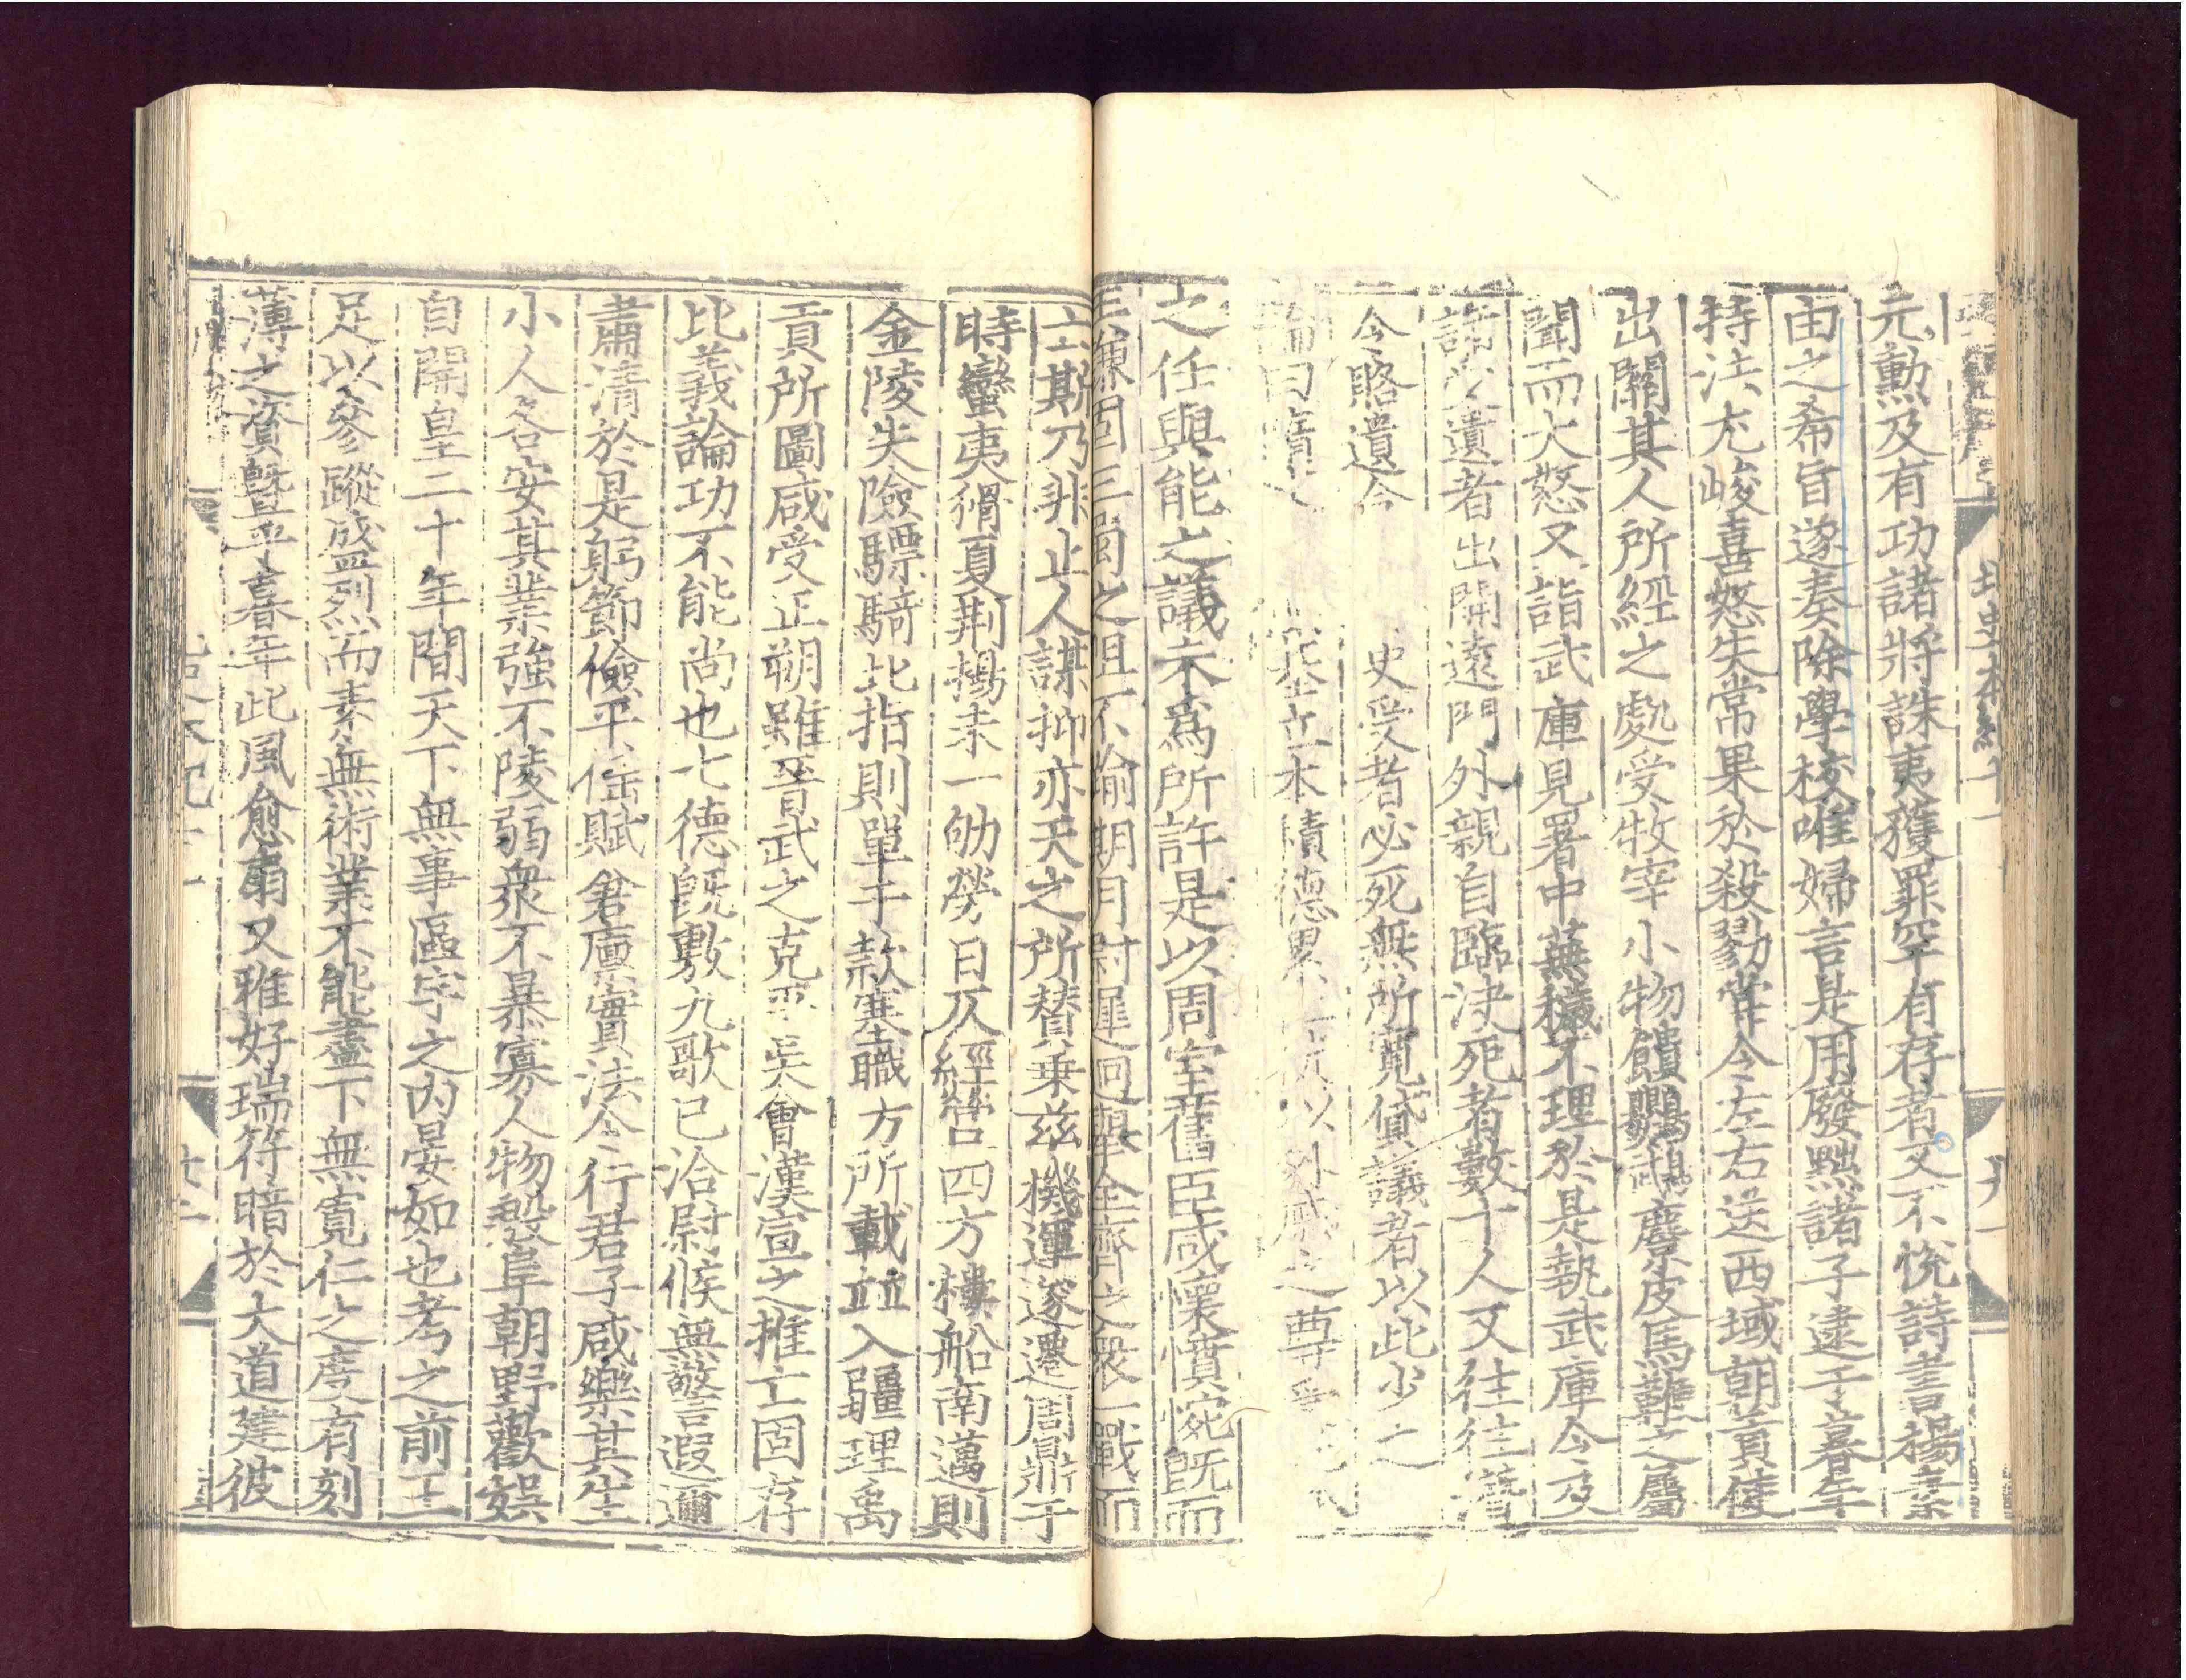 北史本紀十一
元勳及有功諸將誅夷獲罪罕有存者又不悅詩書楊素
由之希旨遂奏除學校唯婦言是用廢黜諸子逮于暮年
持法尤峻喜怒失常果於殺戮嘗令左右送西域朝貢使
出關其人所經之處受牧宰小物饋鸚鵡麖皮馬鞭之屬
聞而大怒又詣武庫見署中蕪穢不理於是執武庫令及
諸受遺者出開遠門外親自臨決死者數十人又往往潛
令賂遺令史受者必死無所寬貸議者以此少之
論曰隋文基立本積德累以外戚之尊受
之任與能之議未爲所許是以周室舊臣咸懷憤惋旣而
王謙固三蜀之阻不踰期月尉遲迥舉全齊之衆一戰而
亡斯乃非止人謀抑亦天之所贊乗兹機運遂遷周鼎于
時蠻夷猾夏荆揚未一劬勞日仄經營四方樓船南邁則
金陵失險驃騎北指則單于款塞職方所載並入疆理禹
貢所圖咸受正朔雖晉武之克平吳會漢宣之推亡固存
比義論功不能尚也七德旣敷九歌已洽尉候無警遐邇
肅清於是躬節儉平徭賦倉廪實法令行君子咸樂其生
小人各安其業強不陵弱衆不暴寡人物殷阜朝野歡娱
自開皇二十年間天下無事區宇之内晏如也考之前王
足以參蹤盛烈而素無術業不能盡下無寛仁之度有刻
薄之資曁乎暮年此風愈扇又雅好瑞符暗於大道建彼